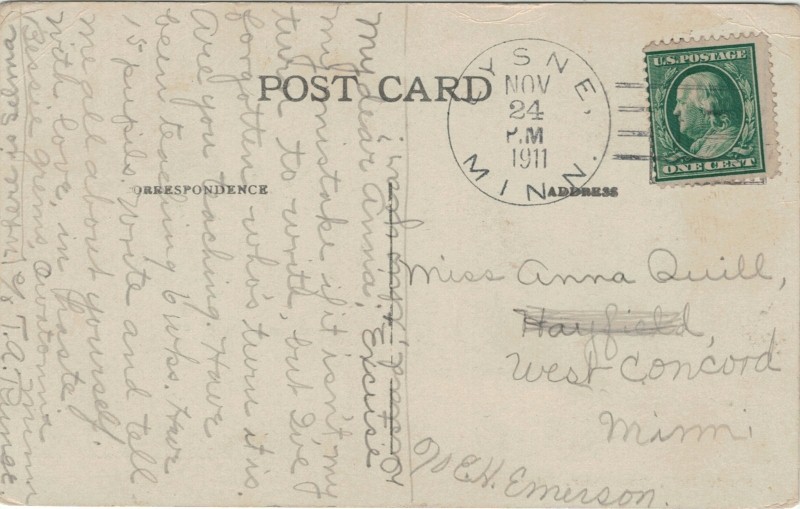 POST CARD
CORRESPONDENCE
ADDRESS
NOV
24
P.M
1911
MINN.
U.S. POSTAGE
ONE CENT
My dear Anna: Excuse
my mistake if it isn't my
turn to write, but I've
forgotten who's turn it is.
Are you teaching. Have
been teaching 6 wks. Have
15 pupils. Write and tell
me all about yourself.
With love, in haste
Bessie Owatonna
Minn
Miss Anna Quill,
Hayfield,
West Concord
Minn.
% E.H. Emerson.